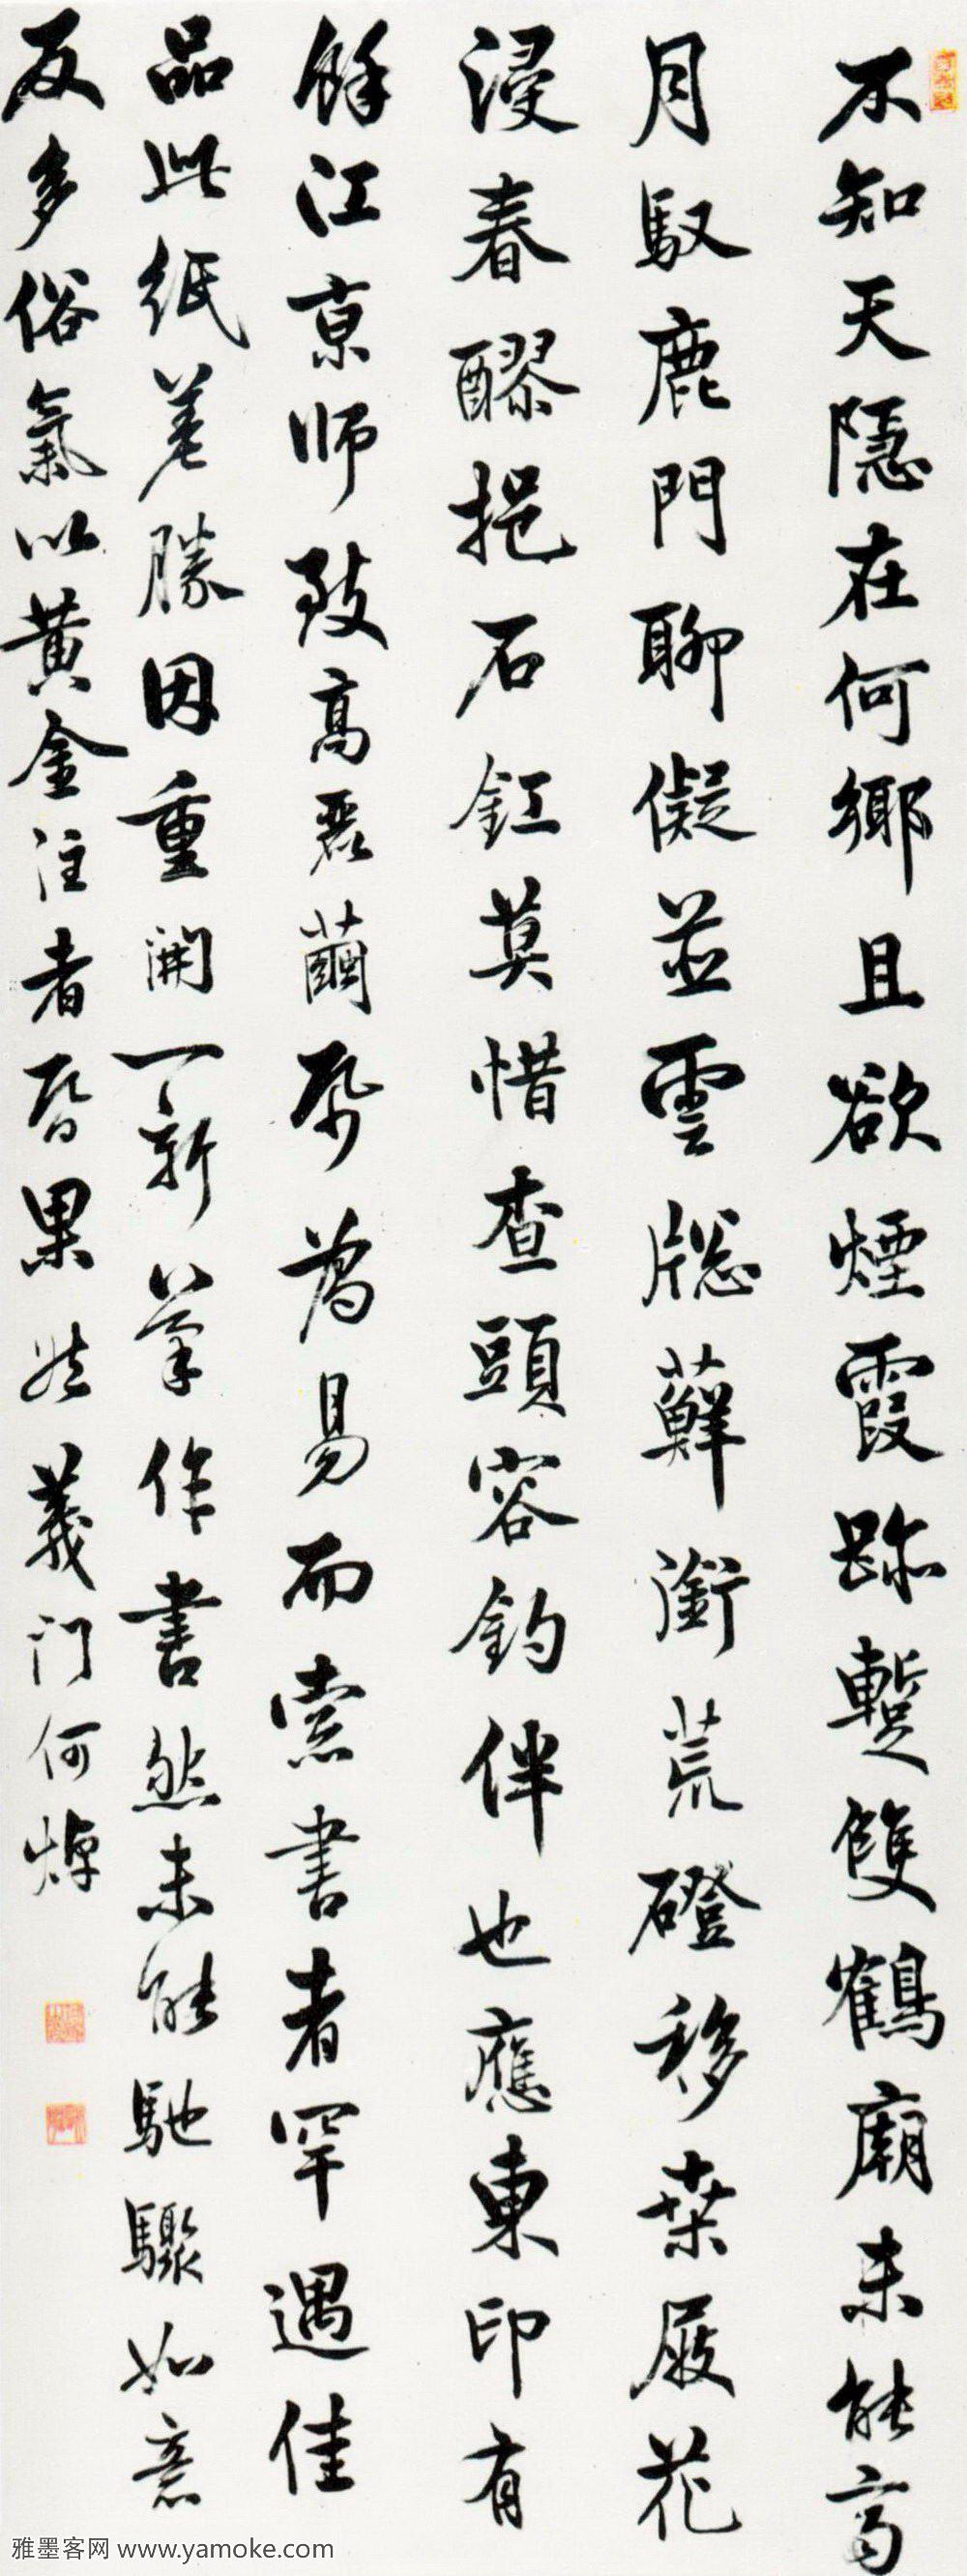 不知天隱在何鄉且欲煙霞跡蹔雙鶴廟未能齊
月馭鹿門聊儗並雲牎蘚銜荒磴移桒屐花
浸春醪挹石釭莫惜查頭容釣伴也應東印有
餘江京師致高麗繭帋爲易而索書者罕遇佳
品此紙差勝因重開一新筆作書然未能馳驟如意
反多俗氣以黃金注者昏果然義门何焯
雅墨客网 www.yamoke.com